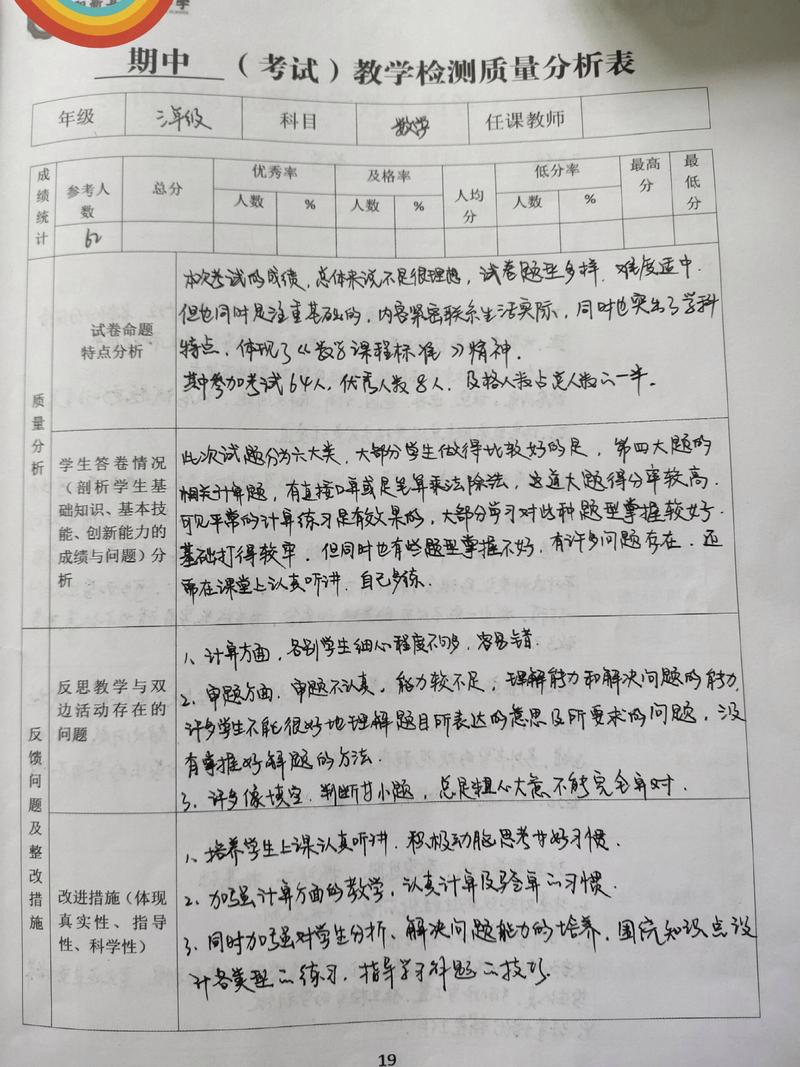 学
期中 （考试）教学检测质量分析表
年级 三年级 科目 数学 任课教师
成绩统计 参考人数 总分 优秀率 及格率 人均分 低分率 最高分 最低分
人数 % 人数 % 人数 %
62
质量分析
试卷命题
特点分析
本次考试的成绩，总体来说不是很理想，试卷题型多样，难度适中.
但也同时是注重基础的，内容紧密联系生活实际，同时也突出了学科
特点，体现了《数学课程标准》精神.
其中参加考试64人，优秀人数8人，及格人数占总人数的一半。
学生答卷情况
（剖析学生基
础知识、基本技
能、创新能力的
成绩与问题）分
析
此次试题分为六大类，大部分学生做得比较好的是，第四大题的
相关计算题，有直接口算或是笔算乘法除法，这道大题得分率较高.
可见平常的计算练习是有效果的，大部分学习对此种题型掌握较好.
基础打得较牢. 但同时也有些题型掌握不好，有许多问题存在. 还
需在课堂上认真听讲. 自己多练.
反馈问题及整改措施
反思教学与双
边活动存在的
问题
1、计算方面，各别学生细心程度不够，容易错.
2、审题方面. 审题不认真，能力较不足，理解能力和解决问题的能力，
许多学生不能很好地理解题目所表达的意思及所要求的问题，没
有掌握好解题的方法.
3、许多像填空. 判断等小题，总是粗心大意不能完全算对.
改进措施（体现
真实性、指导
性、科学性）
1、培养学生上课认真听讲. 积极动脑思考等好习惯.
2、加强计算方面的教学，认真计算及验算的习惯.
3、同时加强对学生分析、解决问题能力的培养，围绕知识点设
计各类型的练习，指导学习解题的技巧.
19